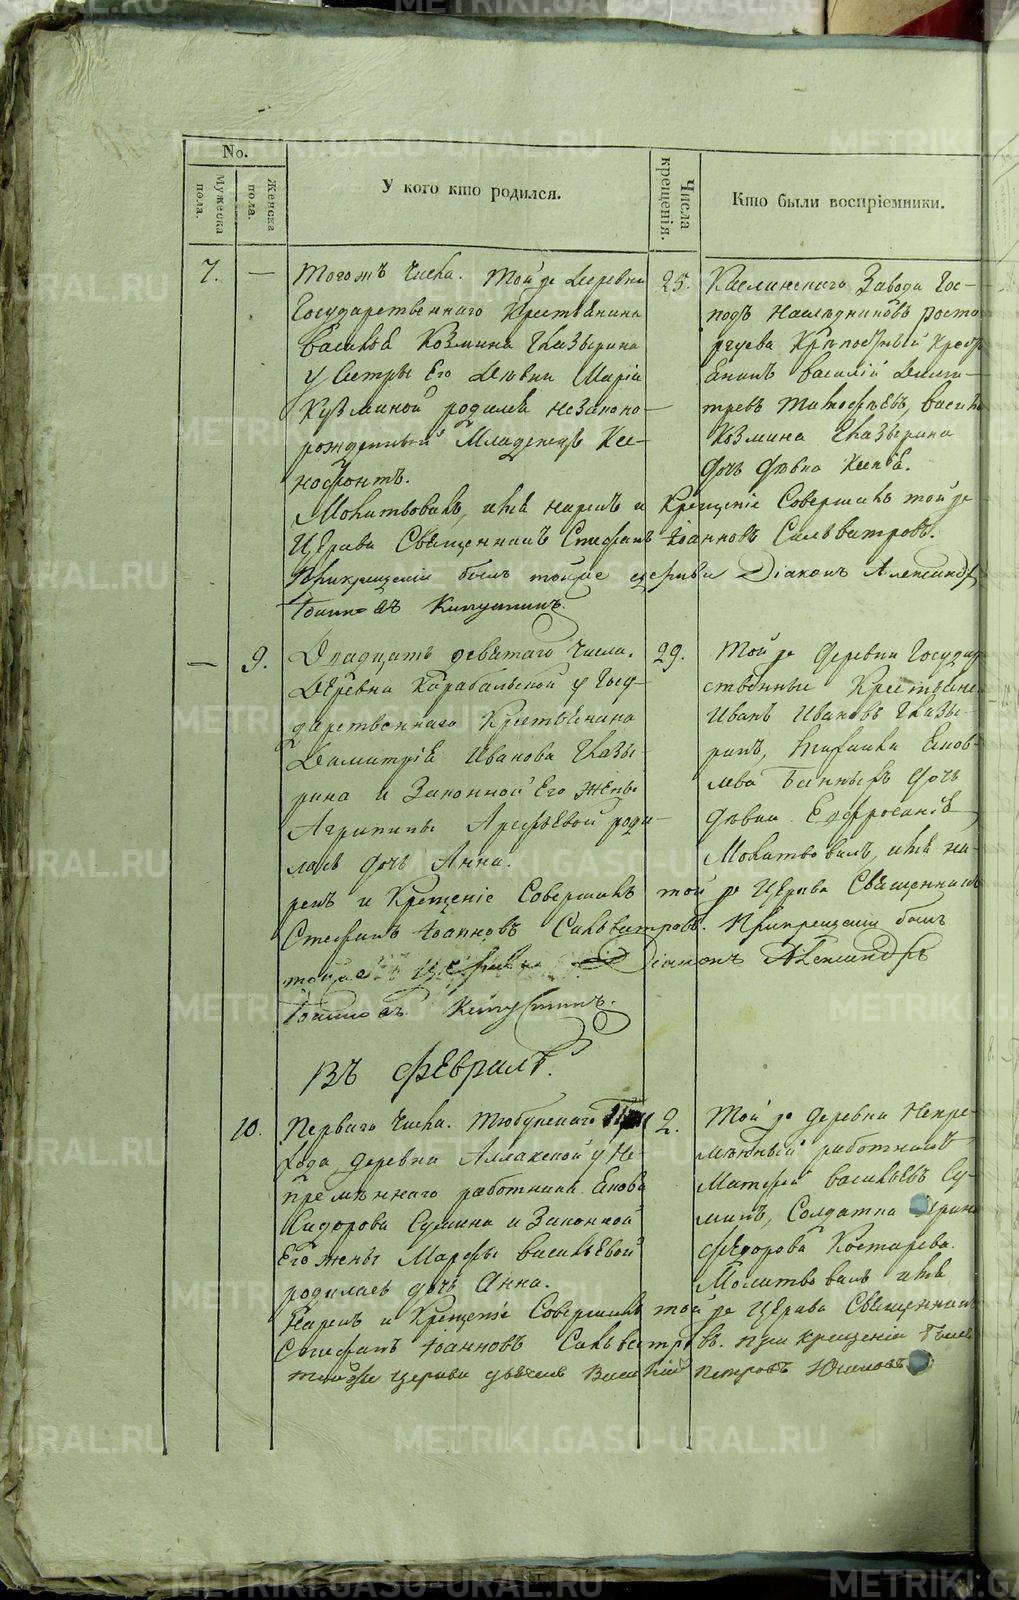 No.
Мужеска пола.
Женска пола.
У кого кто родился.
Числа крещенія.
Кто были воспріемники.
7. —
Тогожъ Числа. Той же Деревни
Государственнаго Крестьянина
Василья Козмина Глазырина
у Сестры Его Девки Маріи
Кузминой родился незаконо-
рожденный Младенецъ Ксе-
нофонтъ.
25.
Каслинскаго Завода Гос-
подъ Наследниковъ Расто-
ргуева Крѣпостный Крестья
Василій Дими-
тревъ Тимофѣевъ, Василья
Козмина Глазырина
Дочь Дѣвка
Молитвовалъ, имя нарекъ и Крещеніе Совершилъ той же
Церкви Священникъ Стефанъ Іоанновъ Сильвестровъ.
При крещеніи былъ тойже церкви Діаконъ Александръ
Іоанновъ Капустинъ.
— 9.
Двадцать девятаго Числа.
Деревни Карабольской у Госу-
дарственнаго Крестьянина
Димитрія Иванова Глазы-
рина и Законной Его жены
Агрипины Арефьевой роди-
лась дочь Анна.
29.
Той же Деревни Государ
ственные Крестьяне
Иванъ Ивановъ Глазы-
ринъ, Яков-
лева дочь
Дѣвка Ефросинія
Молитвовалъ, имя на-
рекъ и Крещеніе Совершилъ той же Церкви Священникъ
Стефанъ Іоанновъ Сильвестровъ. При крещеніи былъ
тойже Церкви Діаконъ Александръ
Іоанновъ Капустинъ.
Въ Февралѣ.
10.
Перваго Числа. Тюбукскаго
хода деревни Аллакской у Не-
премѣннаго работника Якова
Сидорова Сунгина и Законной
Его жены Марфы Васильевой
родилась дочь Анна.
2.
Той же деревни Непре-
мѣнный работникъ
Матфей Васильевъ Су-
Солдатка Ирина
Федорова Костарева.
Молитвовалъ имя
Нарекъ и Крещеніе Совершилъ той же Церкви Священникъ
Стефанъ Іоанновъ Сильвестровъ. при крещеніи былъ
тойже церкви дьячекъ Василій Петровъ
METRIKI.GASO-URAL.RU